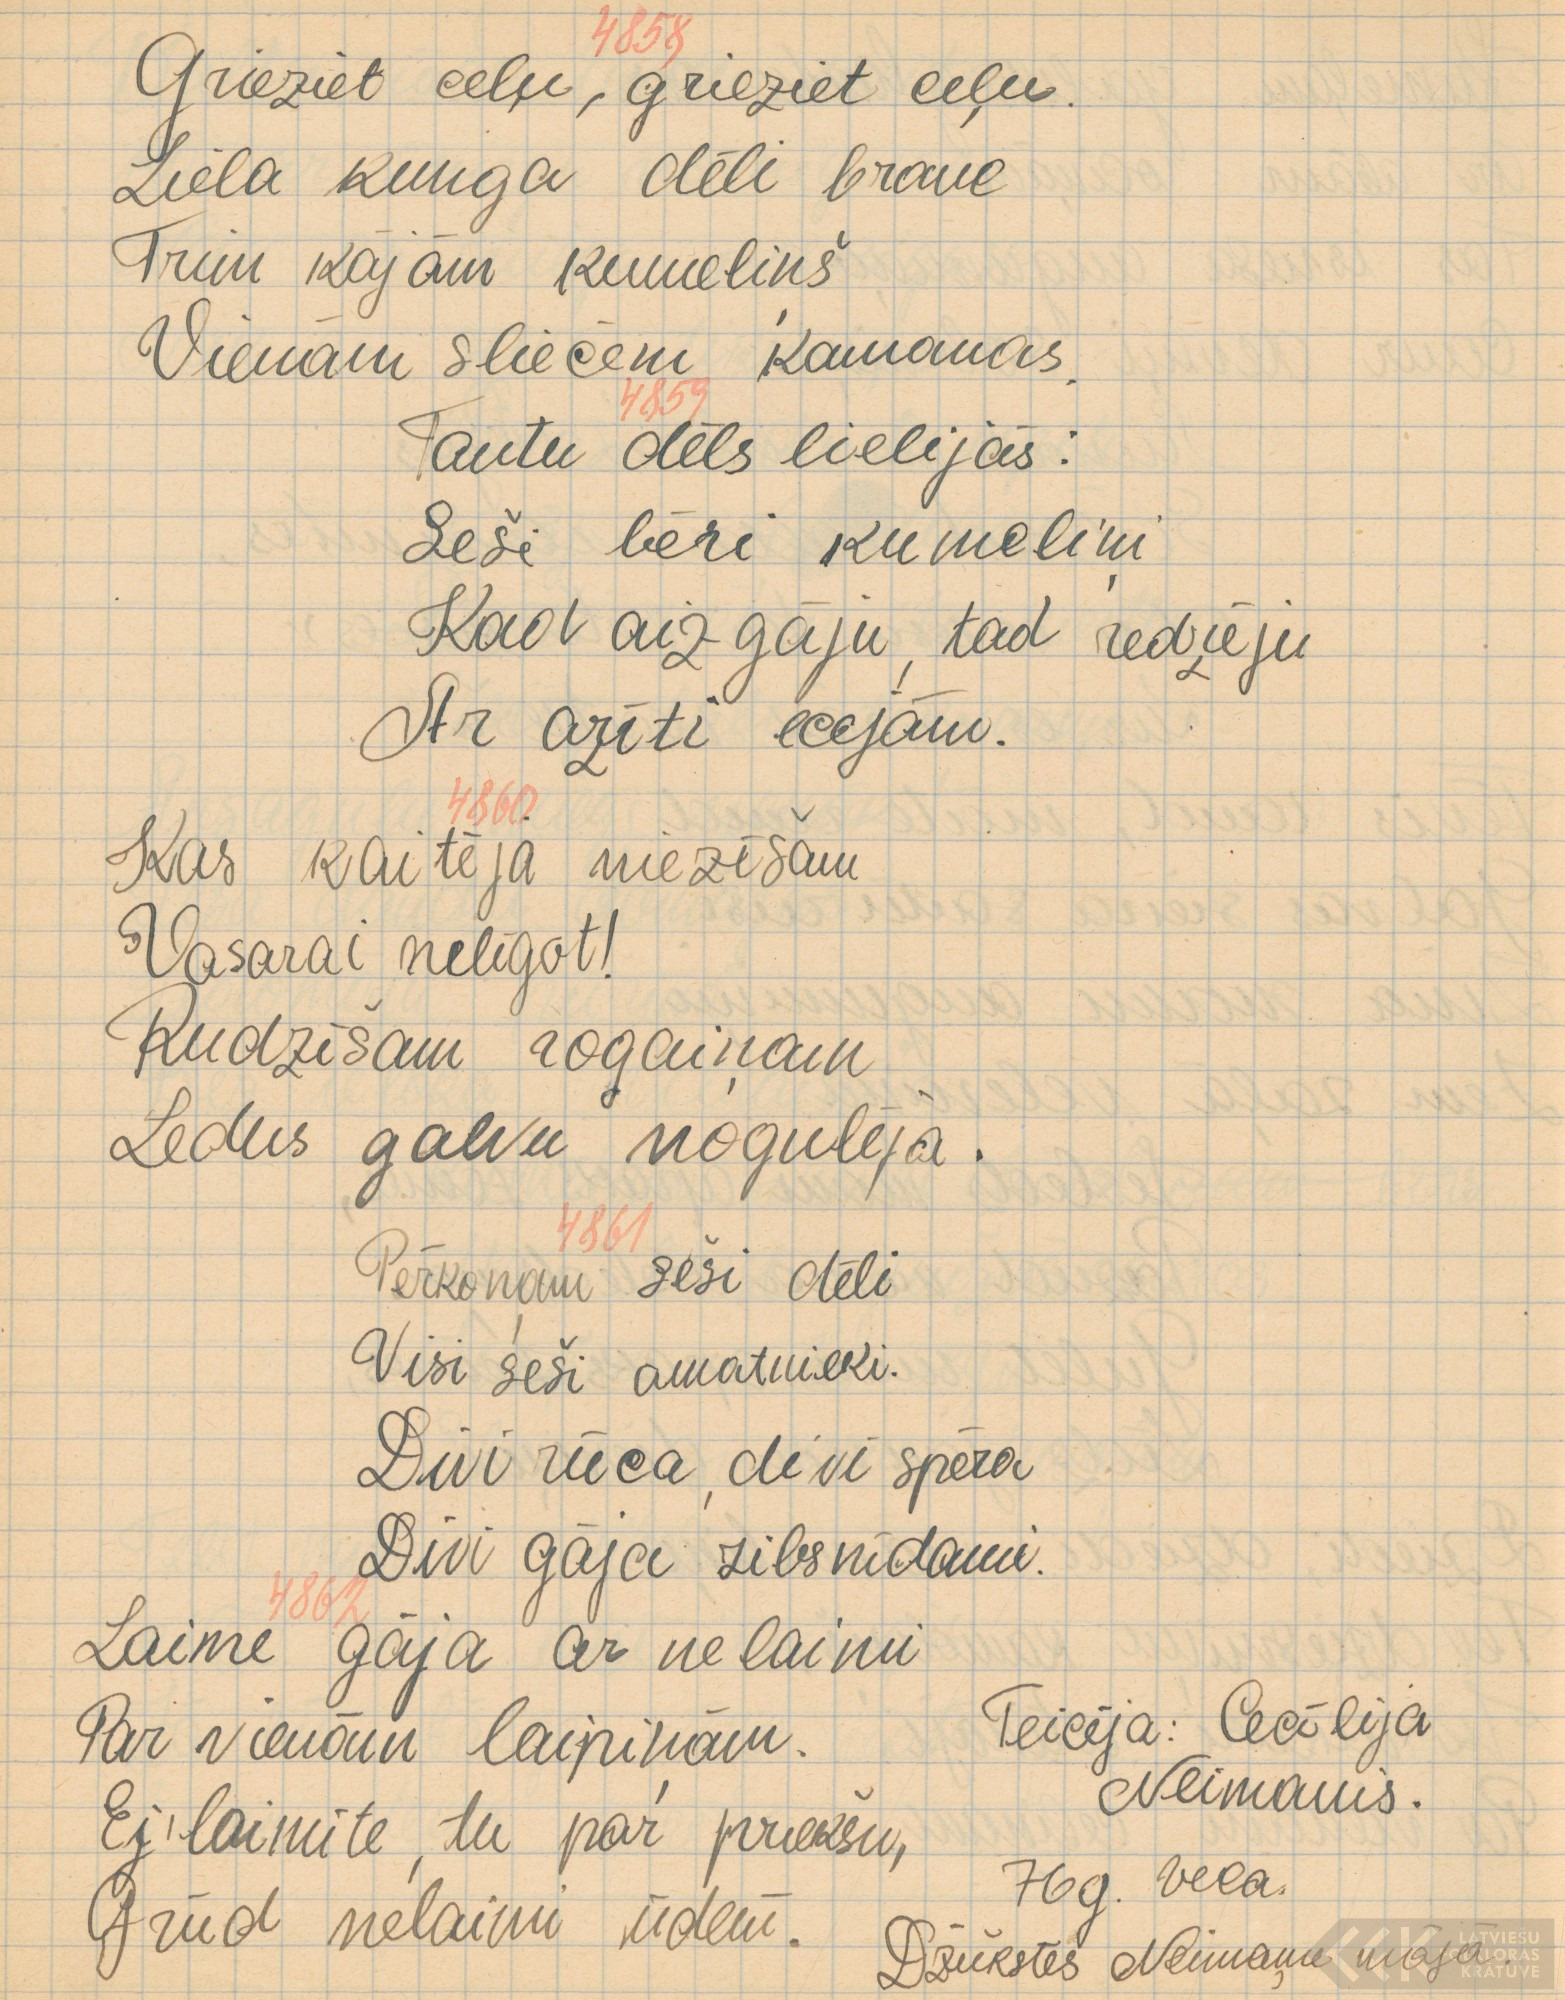 4858
Grieziet ceļu, grieziet ceļu.
Liela kunga dēli brauc
Trim kājām kumeliņš
Vienām sliecēm kamanas.
4859
Tautu dēls lielijās:
Seši bēri kumeliņi
Kad aizgāju, tad redzēju
Ar azīti ecējām.
4860
Kas kaitēja miezīšam
Vasarai nelīgot!
Rudzīšam rogaiņam
Ledus galvu nogulēja.
4861
Pērkoņam seši dēli
Visi seši amatnieki.
Divi rūca, divi spēra
Divi gāja zibsnīdami.
4862
Laime gāja ar nelaimi
Par vienām laipiņām.
Ej laimīte, tu par priekšu,
Grūd nelaimi ūdenī.
Teicēja: Cecīlija
Neimanis.
76g. veca.
Džūkstes Neimaņu mājā.
LATVIEŠU
FOLKLORAS
KRĀTUVE